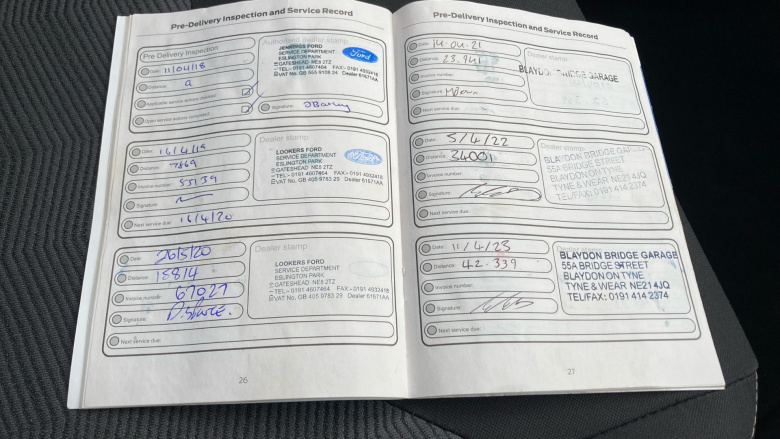 Pre-Delivery Inspection and Service Record
Pre Delivery Inspection
Date: 11/04/18
Distance:
Applicable service actions completed
Open service actions completed
Authorised dealer stamp
JENNINGS FORD
SERVICE DEPARTMENT
ESLINGTON PARK
GATESHEAD NE8 2TZ
TEL:- 0191 4607464 FAX:- 0191 4932418
VAT No. GB 555 9108 24 Dealer 61671AA
Ford
Signature:
Date: 16/4/19
Distance: 7869
Invoice number: 53139
Signature:
Next service due: 16/4/20
Dealer stamp
LOOKERS FORD
SERVICE DEPARTMENT
ESLINGTON PARK
GATESHEAD NE8 2TZ
TEL:- 0191 4607464 FAX:- 0191 4932418
VAT No. GB 405 9783 29 Dealer 61671AA
Date: 26/5/20
Distance: 15814
Invoice number: 67027
Signature:
Next service due:
Dealer stamp
LOOKERS FORD
SERVICE DEPARTMENT
ESLINGTON PARK
GATESHEAD NE8 2TZ
TEL:- 0191 4607464 FAX:- 0191 4932418
VAT No. GB 405 9783 29 Dealer 61671AA
26
Pre-Delivery Inspection and Service Record
Date: 14.04.21
Distance: 23.941
Invoice number:
Signature:
Next service due:
Dealer stamp
BLAYDON BRIDGE GARAGE
Date: 5/4/22
Distance: 34001
Invoice number:
Signature:
Next service due:
Dealer stamp
BLAYDON BRIDGE GARAGE
55A BRIDGE STREET
BLAYDON ON TYNE
TYNE & WEAR NE21 4JQ
TEL/FAX: 0191 414 2374
Date: 11/4/23
Distance: 42.339
Invoice number:
Signature:
Next service due:
Dealer stamp
BLAYDON BRIDGE GARAGE
55A BRIDGE STREET
BLAYDON ON TYNE
TYNE & WEAR NE21 4JQ
TEL/FAX: 0191 414 2374
27